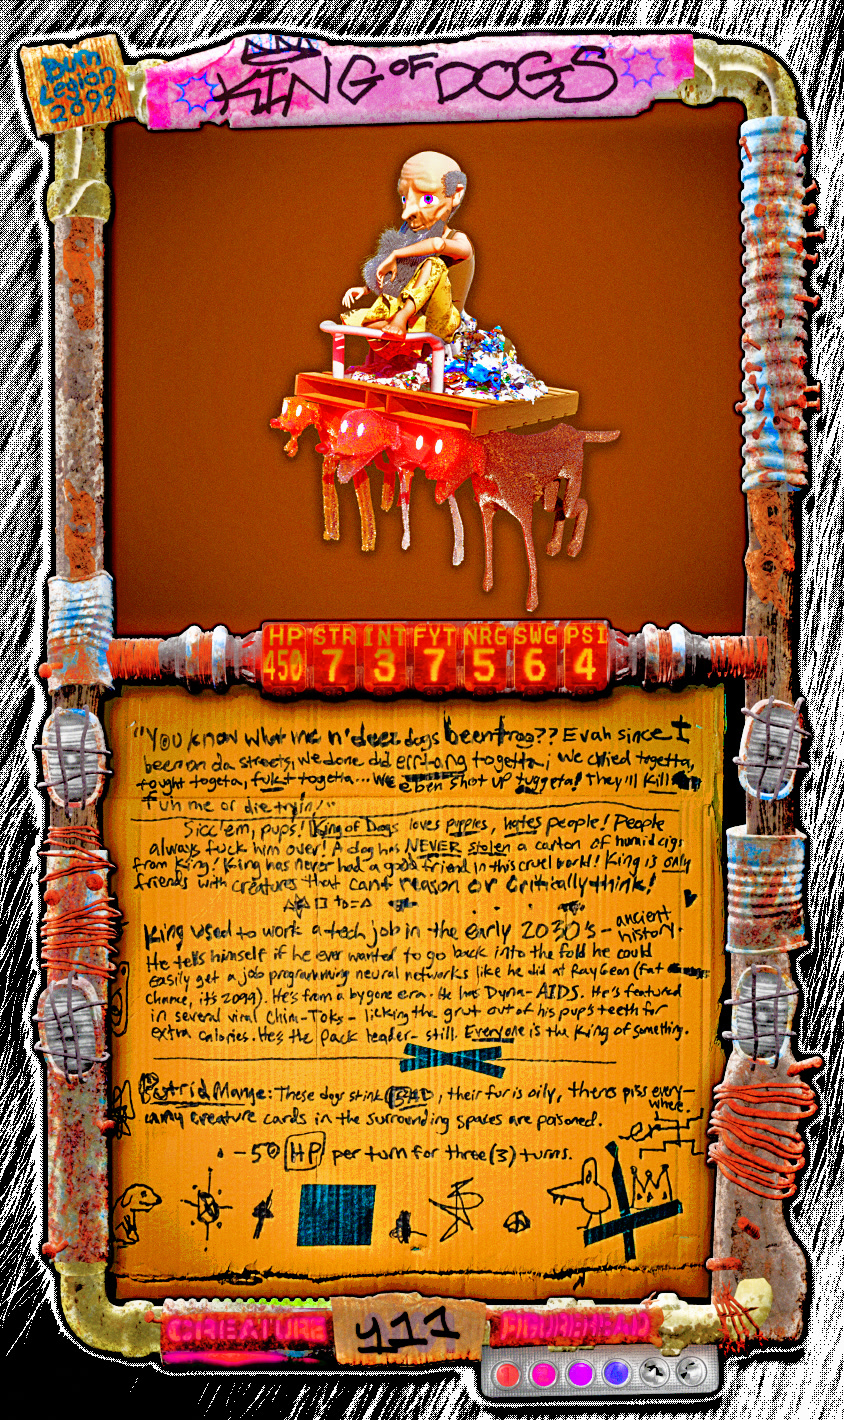 Bum
Legion
2099
KING OF DOGS
HP STR INT FYT NRG SWG PSI
450 7 3 7 5 6 4
"You know what me n' deez dogs been troo?? Evah since I
been on da streets, we done did errtang togetta; we cried togetta,
fought togeta, fukt togetta... We eben shot up tuggeta! They'll kill
fuh me or die tryin!"
Sicc'em, pups! King of Dogs loves puppies, hates people! People
always fuck him over! A dog has NEVER stolen a carton of humid cigs
from King! King has never had a good friend in this cruel world! King is only
friends with creatures that cant reason or critically think!
King used to work a tech job in the early 2030's - ancient
history.
He tells himself if he ever wanted to go back into the fold he could
easily get a job programming neural networks like he did at RayGeon (fat
chance, it's 2099). He's from a bygone era. He has Dyna-AIDS. He's featured
in several viral Chim-Toks - licking the grut out of his pups teeth for
extra calories. He's the pack leader - still. Everyone is the King of something.
Putrid Mange: These dogs stink BAD, their fur is oily, theres piss every-
where.
Creature cards in the surrounding spaces are poisoned.
-50 HP per turn for three (3) turns.
CREATURE 411 FIGUREHEAD